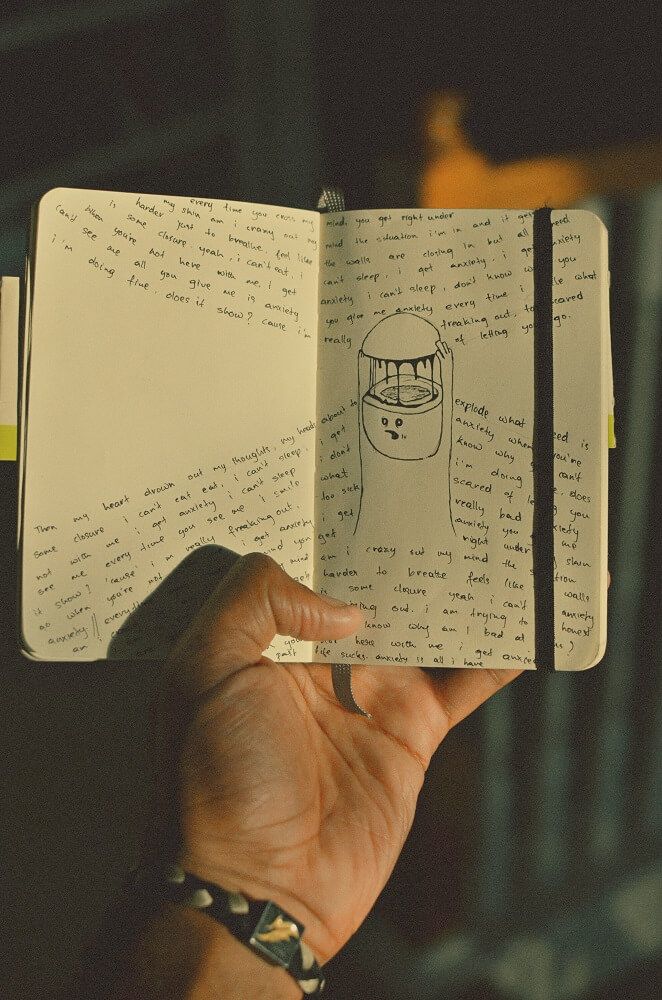 every time you cross my
my skin am i crazy out my
is harder just to breathe. feel like
can't some closure. yeah, i can't eat, i
when you're not here with me, i get
see me all you give me is anxiety
i'm doing fine, does it show? cause i'm
Then my heart drown out my thoughts, my head
some closure i can't eat, i can't sleep,
not with me i get anxiety i can't sleep
see me every time you see me i smile
it show? 'cause' i'm really freaking out,
so when you're not i get anxiety
anxiety mind you
am
mind, you get right under
mind the situation i'm in and it gets
the walls are closing in but all i need
can't sleep, i get anxiety, i get anxiety
anxiety i can't sleep, don't know you
you give me anxiety every time i smile what
really freaking out, too scared
of letting you go.
about to explode what need is
i get anxiety when you're
i don't know why can't
what i'm doing does
too sick scared of you
i get really bad anxiety
get anxiety you me
right under skin
am i crazy out my mind the
harder to breathe feels like walls
is some closure yeah i can't
out. i am trying to anxiety
know why am i bad at honest
here with me i get anxiety
past life sucks. anxiety is all i have